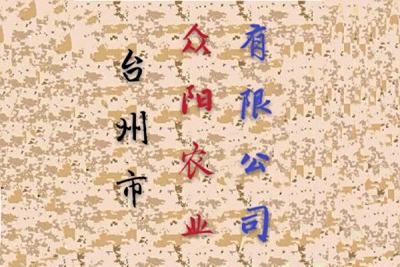 台州市
众阳农业
有限公司